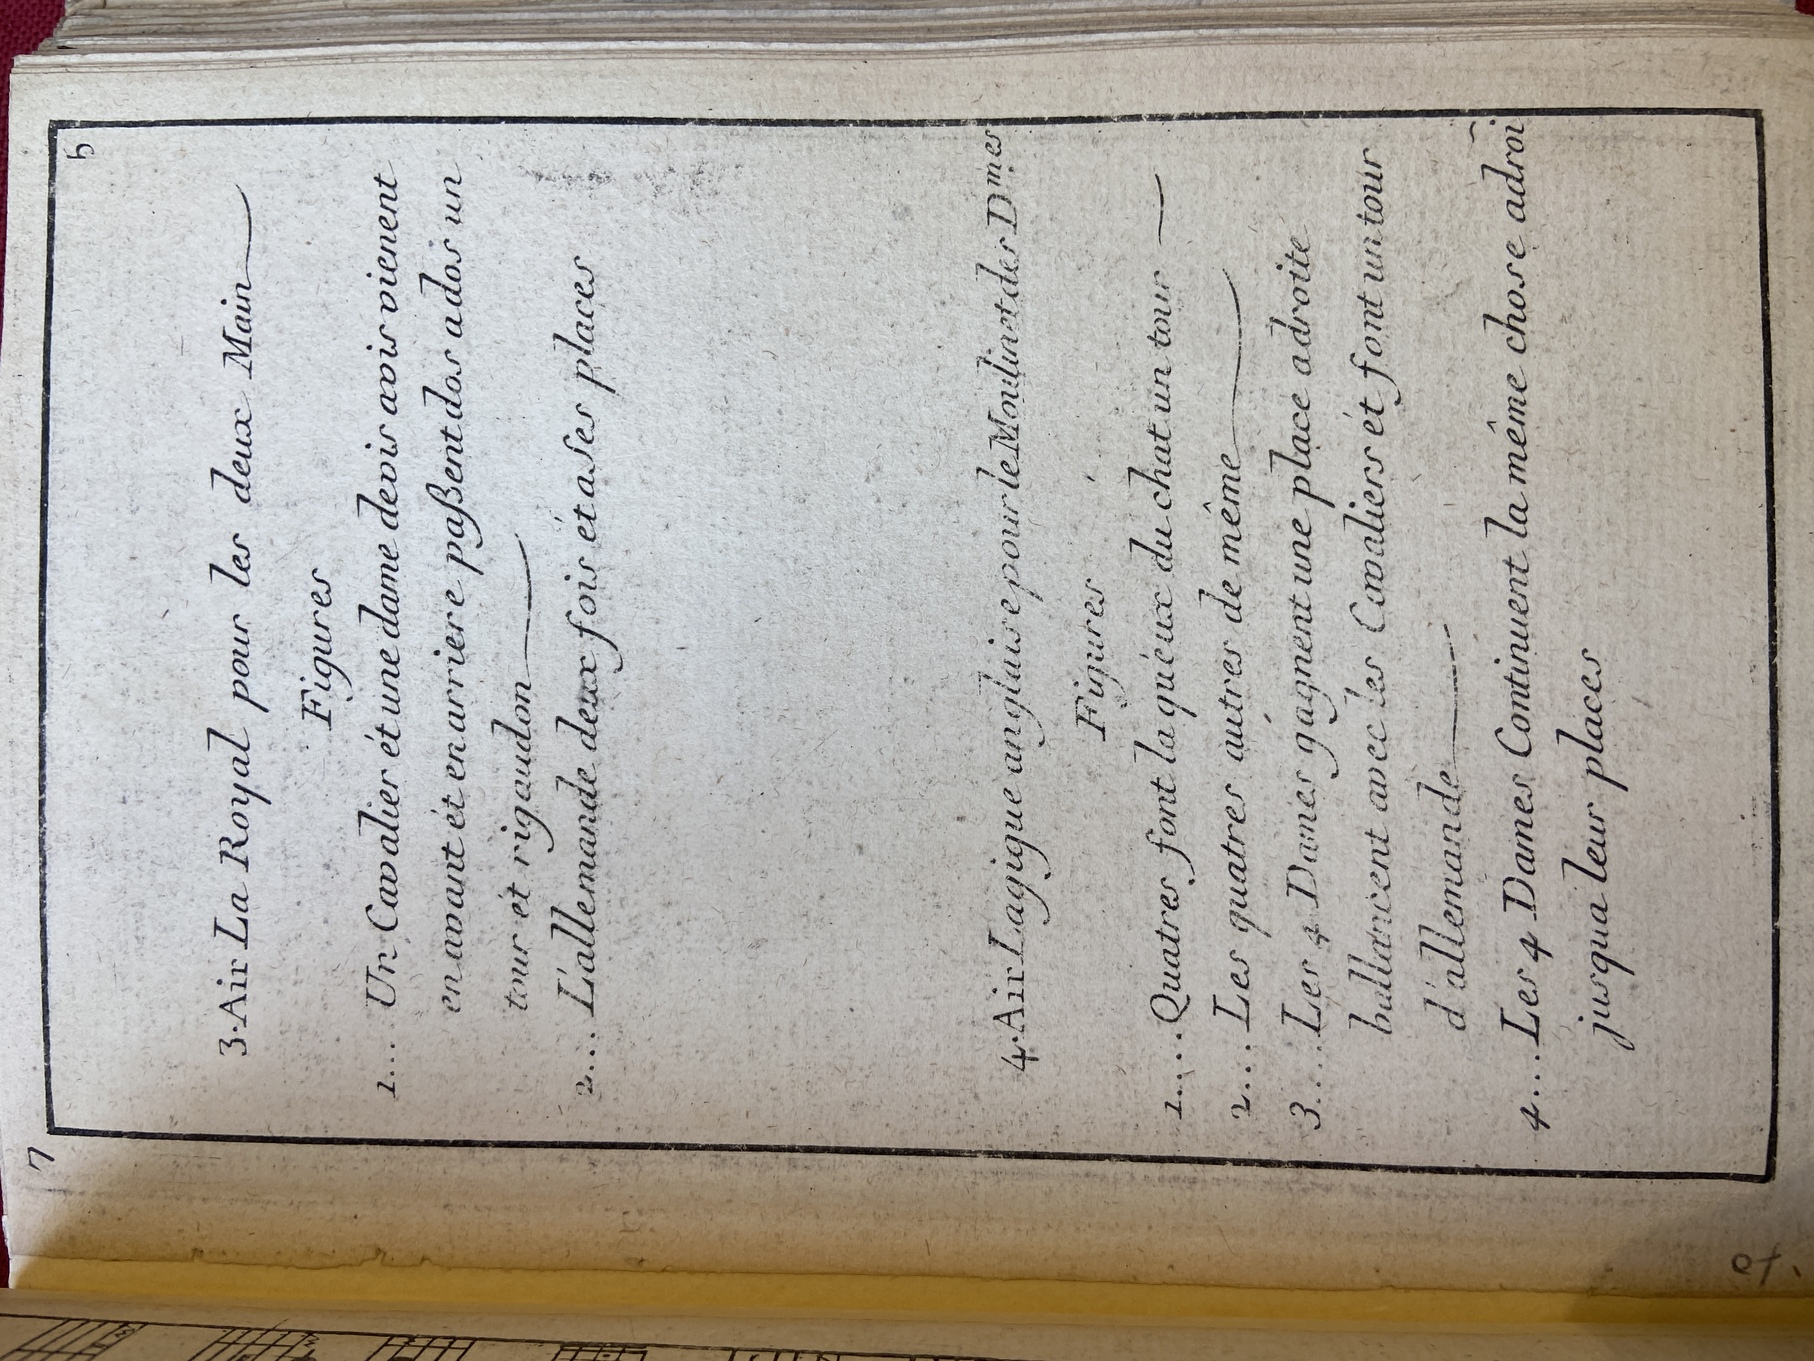 7
5
3. Air La Royal pour les deux Main
Figures
1... Un Cavalier ét une dame devis avis vienent
en avant ét en arriere paßent dos a dos un
tour ét rigaudon
2... L'allemande deux fois ét a ses places
4. Air La gigue anglaise pour le Moulinet des Dmes
Figures
1.... Quatres font la quéux du chat un tour
2.... Les quatres autres de même
3.... Les 4 Dames gagnent une place adroite
ballancent avec les Cavaliers ét font un tour
d'allemande
4.... Les 4 Dames Continuent la même chose adroi
jusqua leur places